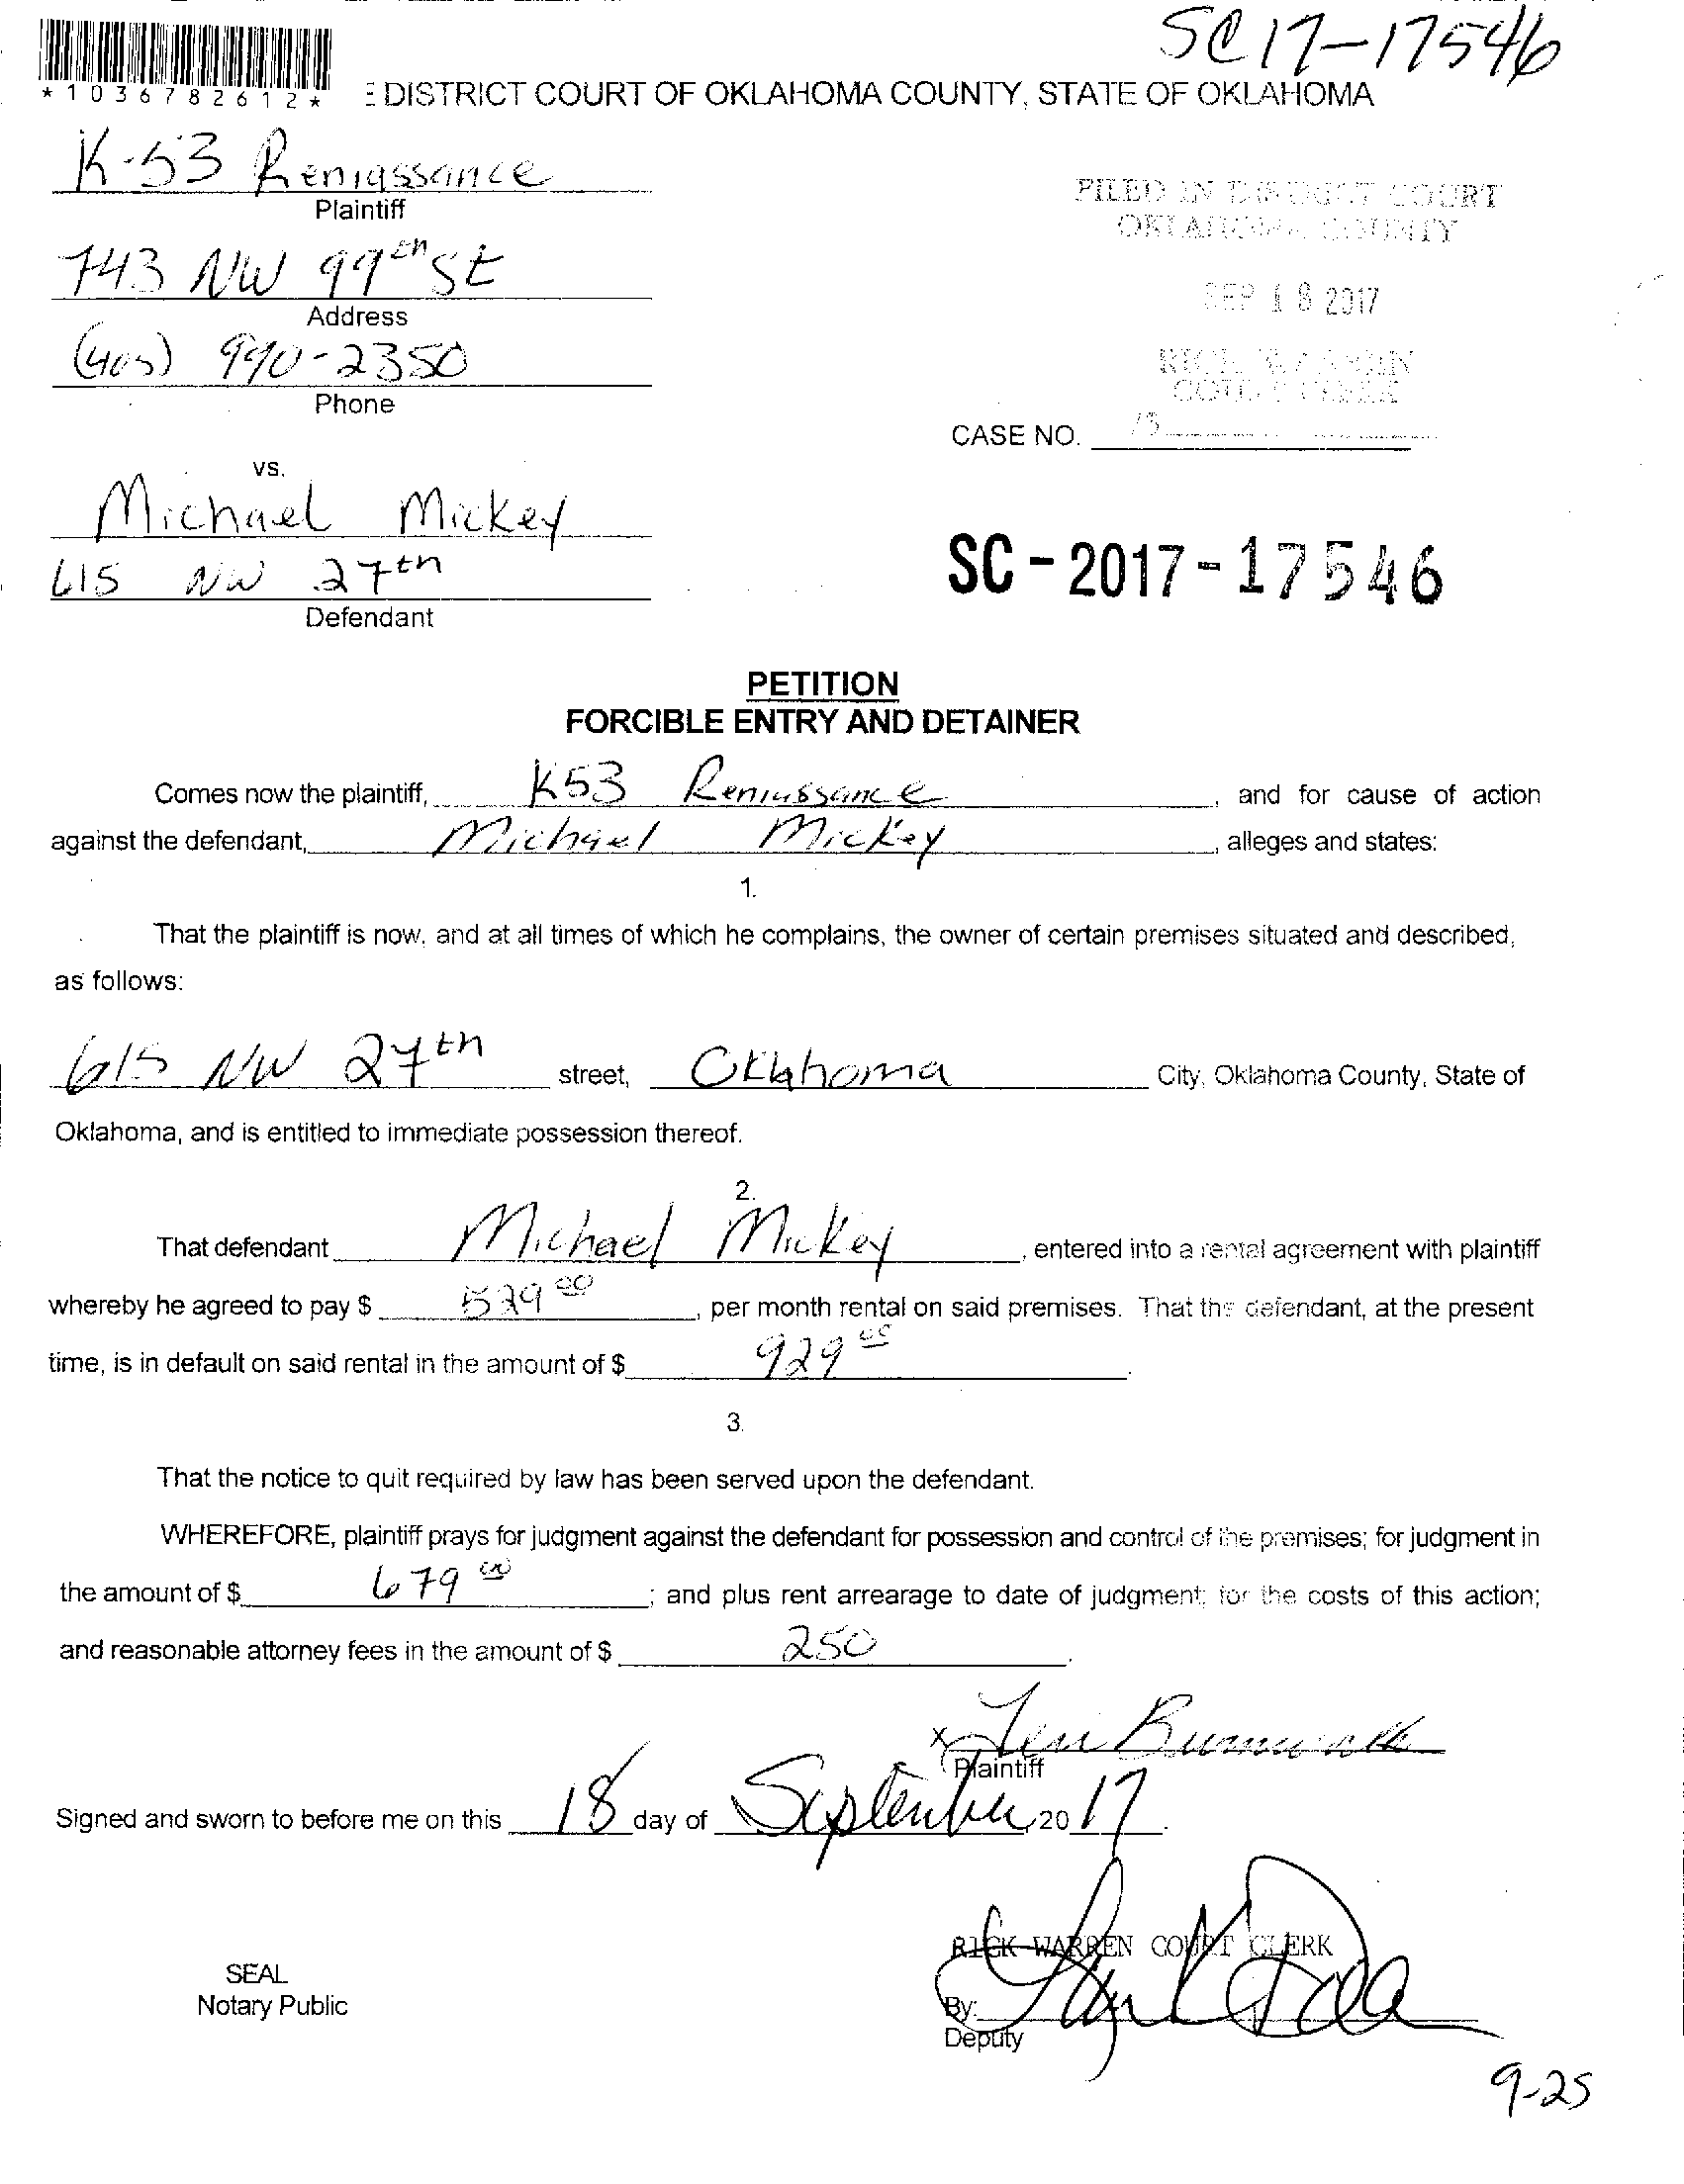 SC17-17546
*1036782612*
E DISTRICT COURT OF OKLAHOMA COUNTY, STATE OF OKLAHOMA
K-53 Reniassance
Plaintiff
FILED IN DISTRICT COURT
OKLAHOMA COUNTY
743 NW 99th St
Address
SEP 18 2017
(405) 990-2350
Phone
RICK WARREN
COURT CLERK
CASE NO.
vs.
Michael Mickey
615 NW 27th
Defendant
SC-2017-17546
PETITION
FORCIBLE ENTRY AND DETAINER
Comes now the plaintiff, K53 Reniassance, and for cause of action
against the defendant, Michael Mickey, alleges and states:
1.
That the plaintiff is now, and at all times of which he complains, the owner of certain premises situated and described,
as follows:
615 NW 27th street, Oklahoma City, Oklahoma County, State of
Oklahoma, and is entitled to immediate possession thereof.
2.
That defendant Michael Mickey, entered into a rental agreement with plaintiff
whereby he agreed to pay $ 529 00, per month rental on said premises. That the defendant, at the present
time, is in default on said rental in the amount of $ 929 00.
3.
That the notice to quit required by law has been served upon the defendant.
WHEREFORE, plaintiff prays for judgment against the defendant for possession and control of the premises; for judgment in
the amount of $ 679 00; and plus rent arrearage to date of judgment; for the costs of this action;
and reasonable attorney fees in the amount of $ 250.
x
Plaintiff
Signed and sworn to before me on this 18 day of September, 20 17.
RICK WARREN COURT CLERK
SEAL
Notary Public
By:
Deputy
9-25